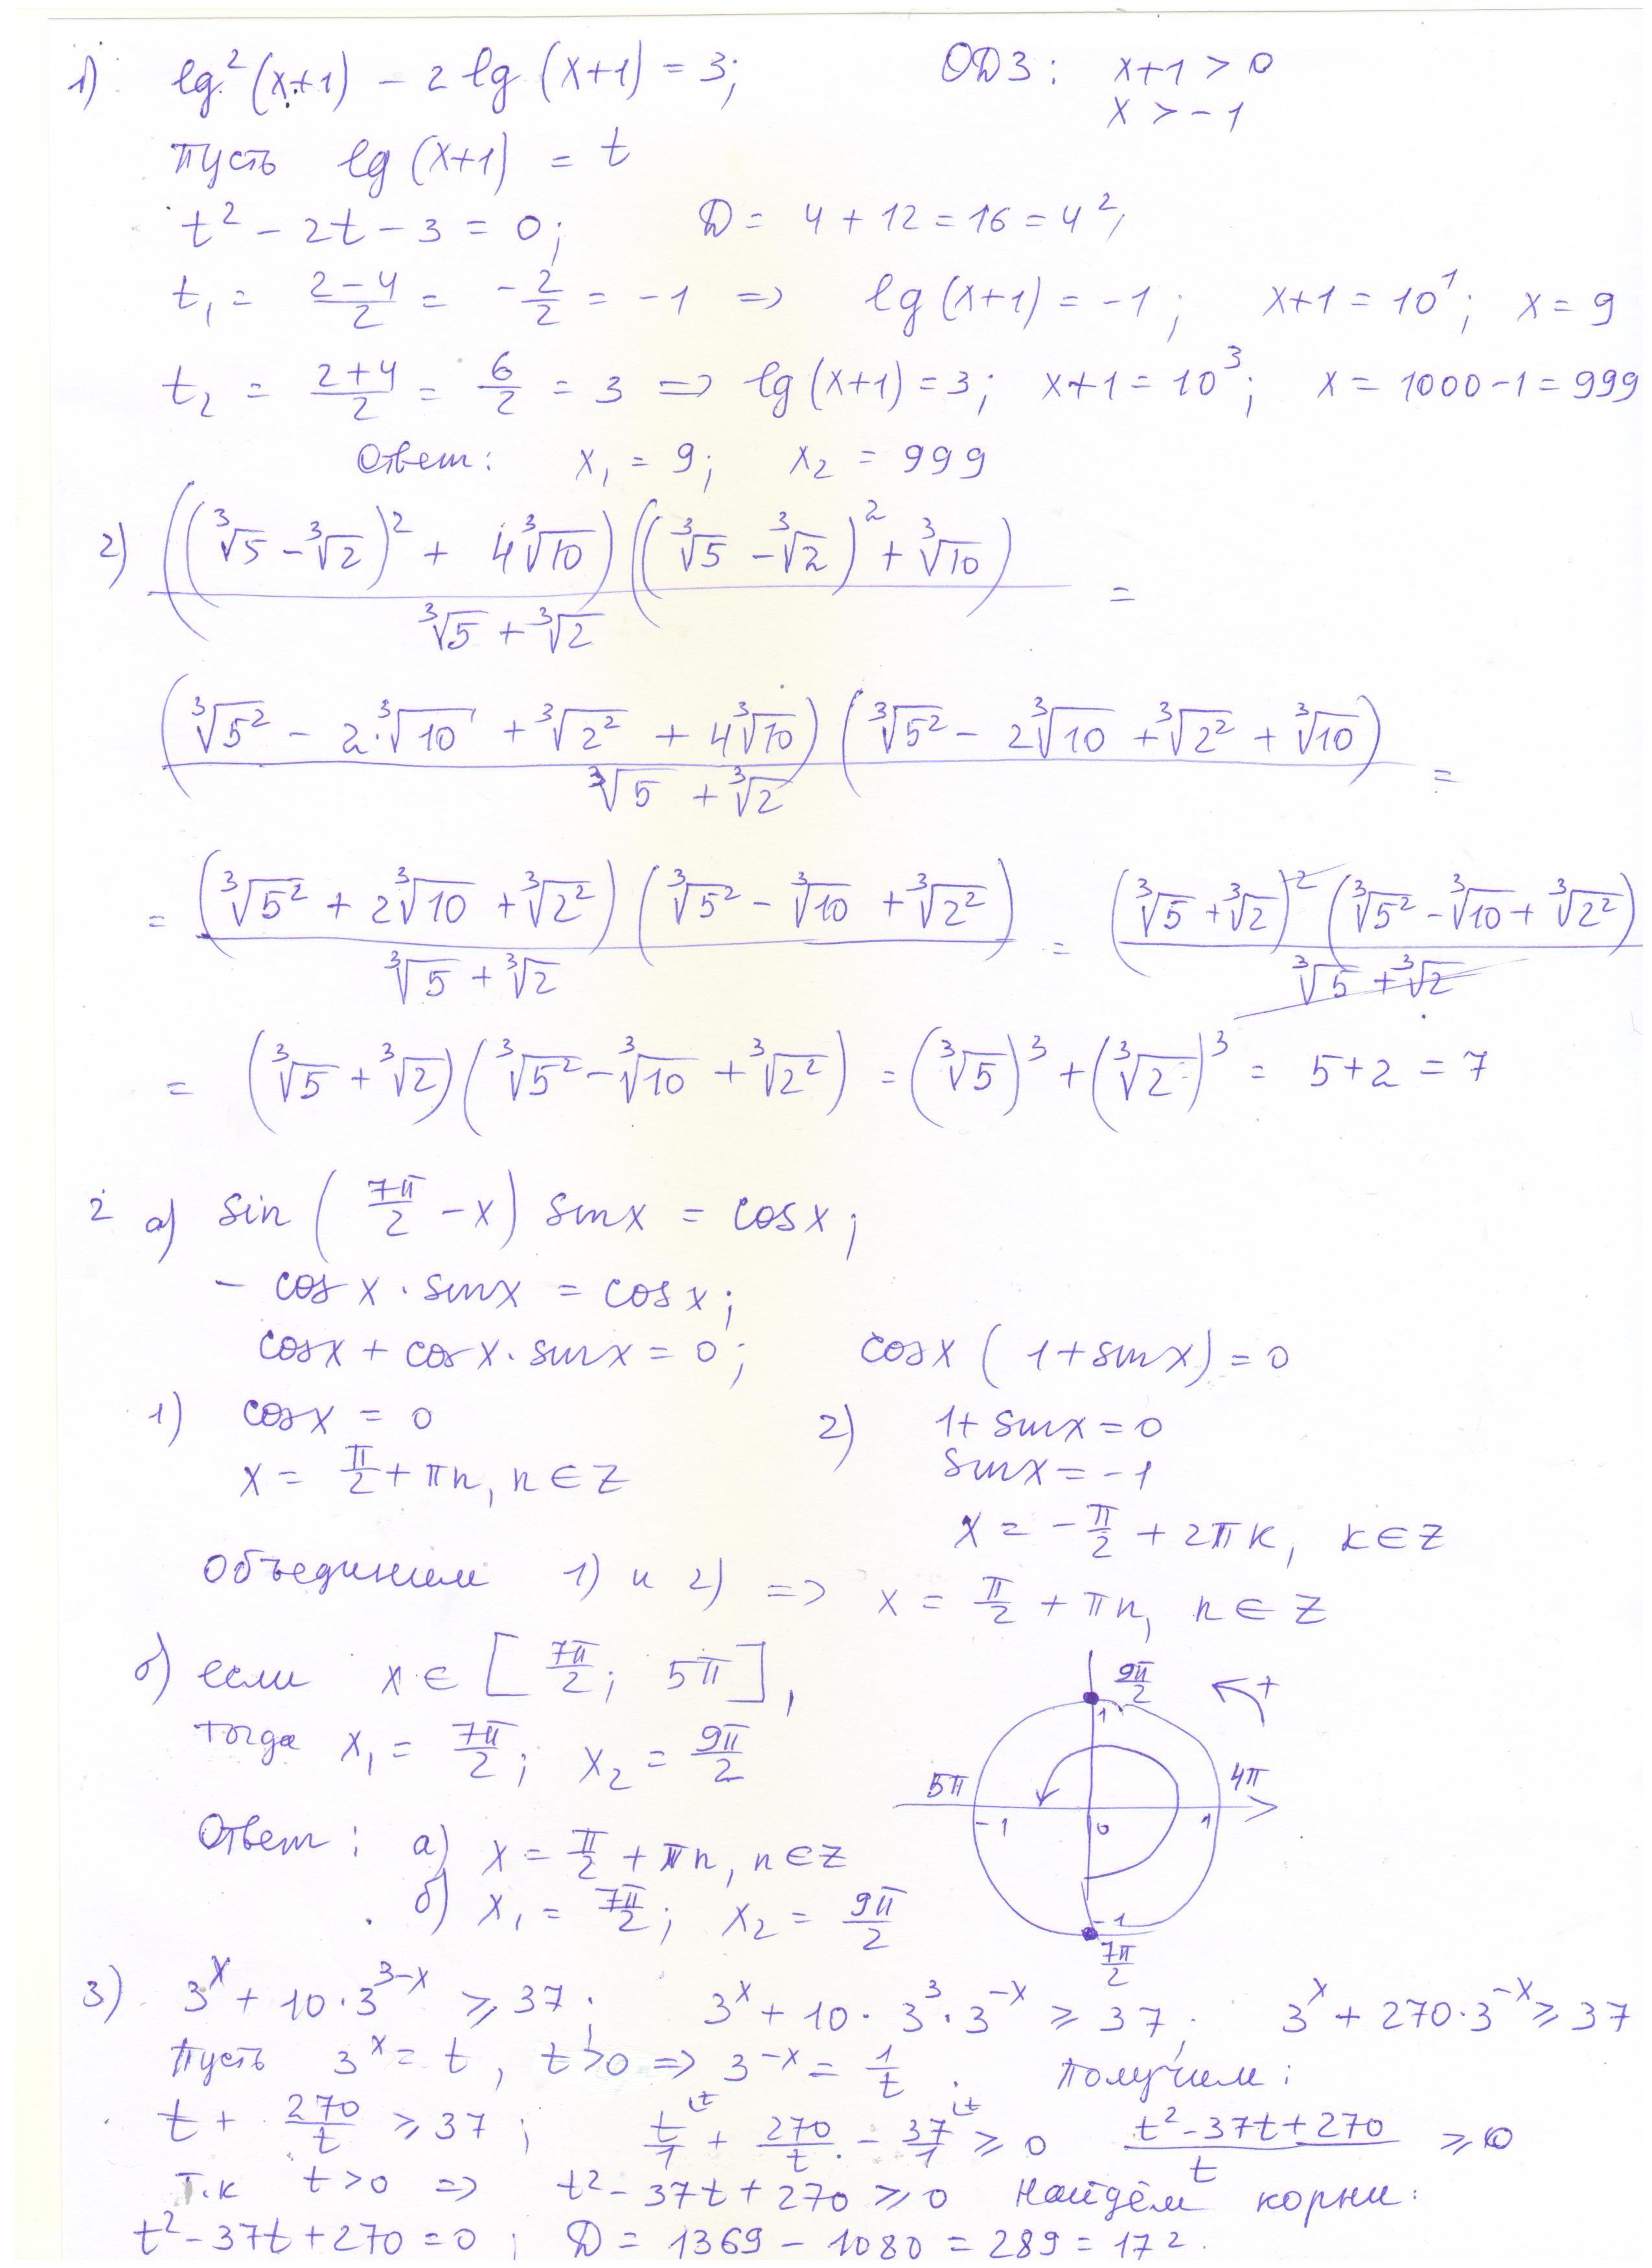 1) lg²(x+1) - 2 lg (x+1) = 3; ОДЗ: x+1 > 0
x > -1
Пусть lg (x+1) = t
t² - 2t - 3 = 0; D = 4 + 12 = 16 = 4²;
t₁ = (2-4)/2 = -2/2 = -1 => lg (x+1) = -1; x+1 = 10¹; x = 9
t₂ = (2+4)/2 = 6/2 = 3 => lg (x+1) = 3; x+1 = 10³; x = 1000-1 = 999
Ответ: x₁ = 9; x₂ = 999
2) ((∛5 - ∛2)² + 4∛10)((∛5 - ∛2)² + ∛10) / (∛5 + ∛2) =
(∛5² - 2·∛10 + ∛2² + 4∛10)(∛5² - 2∛10 + ∛2² + ∛10) / (∛5 + ∛2) =
= (∛5² + 2∛10 + ∛2²)(∛5² - ∛10 + ∛2²) / (∛5 + ∛2) = (∛5 + ∛2)²(∛5² - ∛10 + ∛2²) / (∛5 + ∛2)
= (∛5 + ∛2)(∛5² - ∛10 + ∛2²) = (∛5)³ + (∛2)³ = 5+2 = 7
2 а) sin (7π/2 - x) sin x = cos x;
- cos x · sin x = cos x;
cos x + cos x · sin x = 0; cos x (1 + sin x) = 0
1) cos x = 0 2) 1 + sin x = 0
x = π/2 + πn, n ∈ Z sin x = -1
x = -π/2 + 2πk, k ∈ Z
Объединим 1) и 2) => x = π/2 + πn, n ∈ Z
б) если x ∈ [7π/2; 5π],
тогда x₁ = 7π/2; x₂ = 9π/2
9π/2 +
1
5π 4π
-1 0 1
-1
7π/2
Ответ: а) x = π/2 + πn, n ∈ Z
б) x₁ = 7π/2; x₂ = 9π/2
3) 3ˣ + 10·3³⁻ˣ ≥ 37; 3ˣ + 10·3³·3⁻ˣ ≥ 37; 3ˣ + 270·3⁻ˣ ≥ 37
Пусть 3ˣ = t, t > 0 => 3⁻ˣ = 1/t. Получим:
t + 270/t ≥ 37; t/1 ⁽ᵗ + 270/t - 37/1 ⁽ᵗ ≥ 0 (t² - 37t + 270)/t ≥ 0
Т.к t > 0 => t² - 37t + 270 ≥ 0 Найдём корни:
t² - 37t + 270 = 0; D = 1369 - 1080 = 289 = 17².